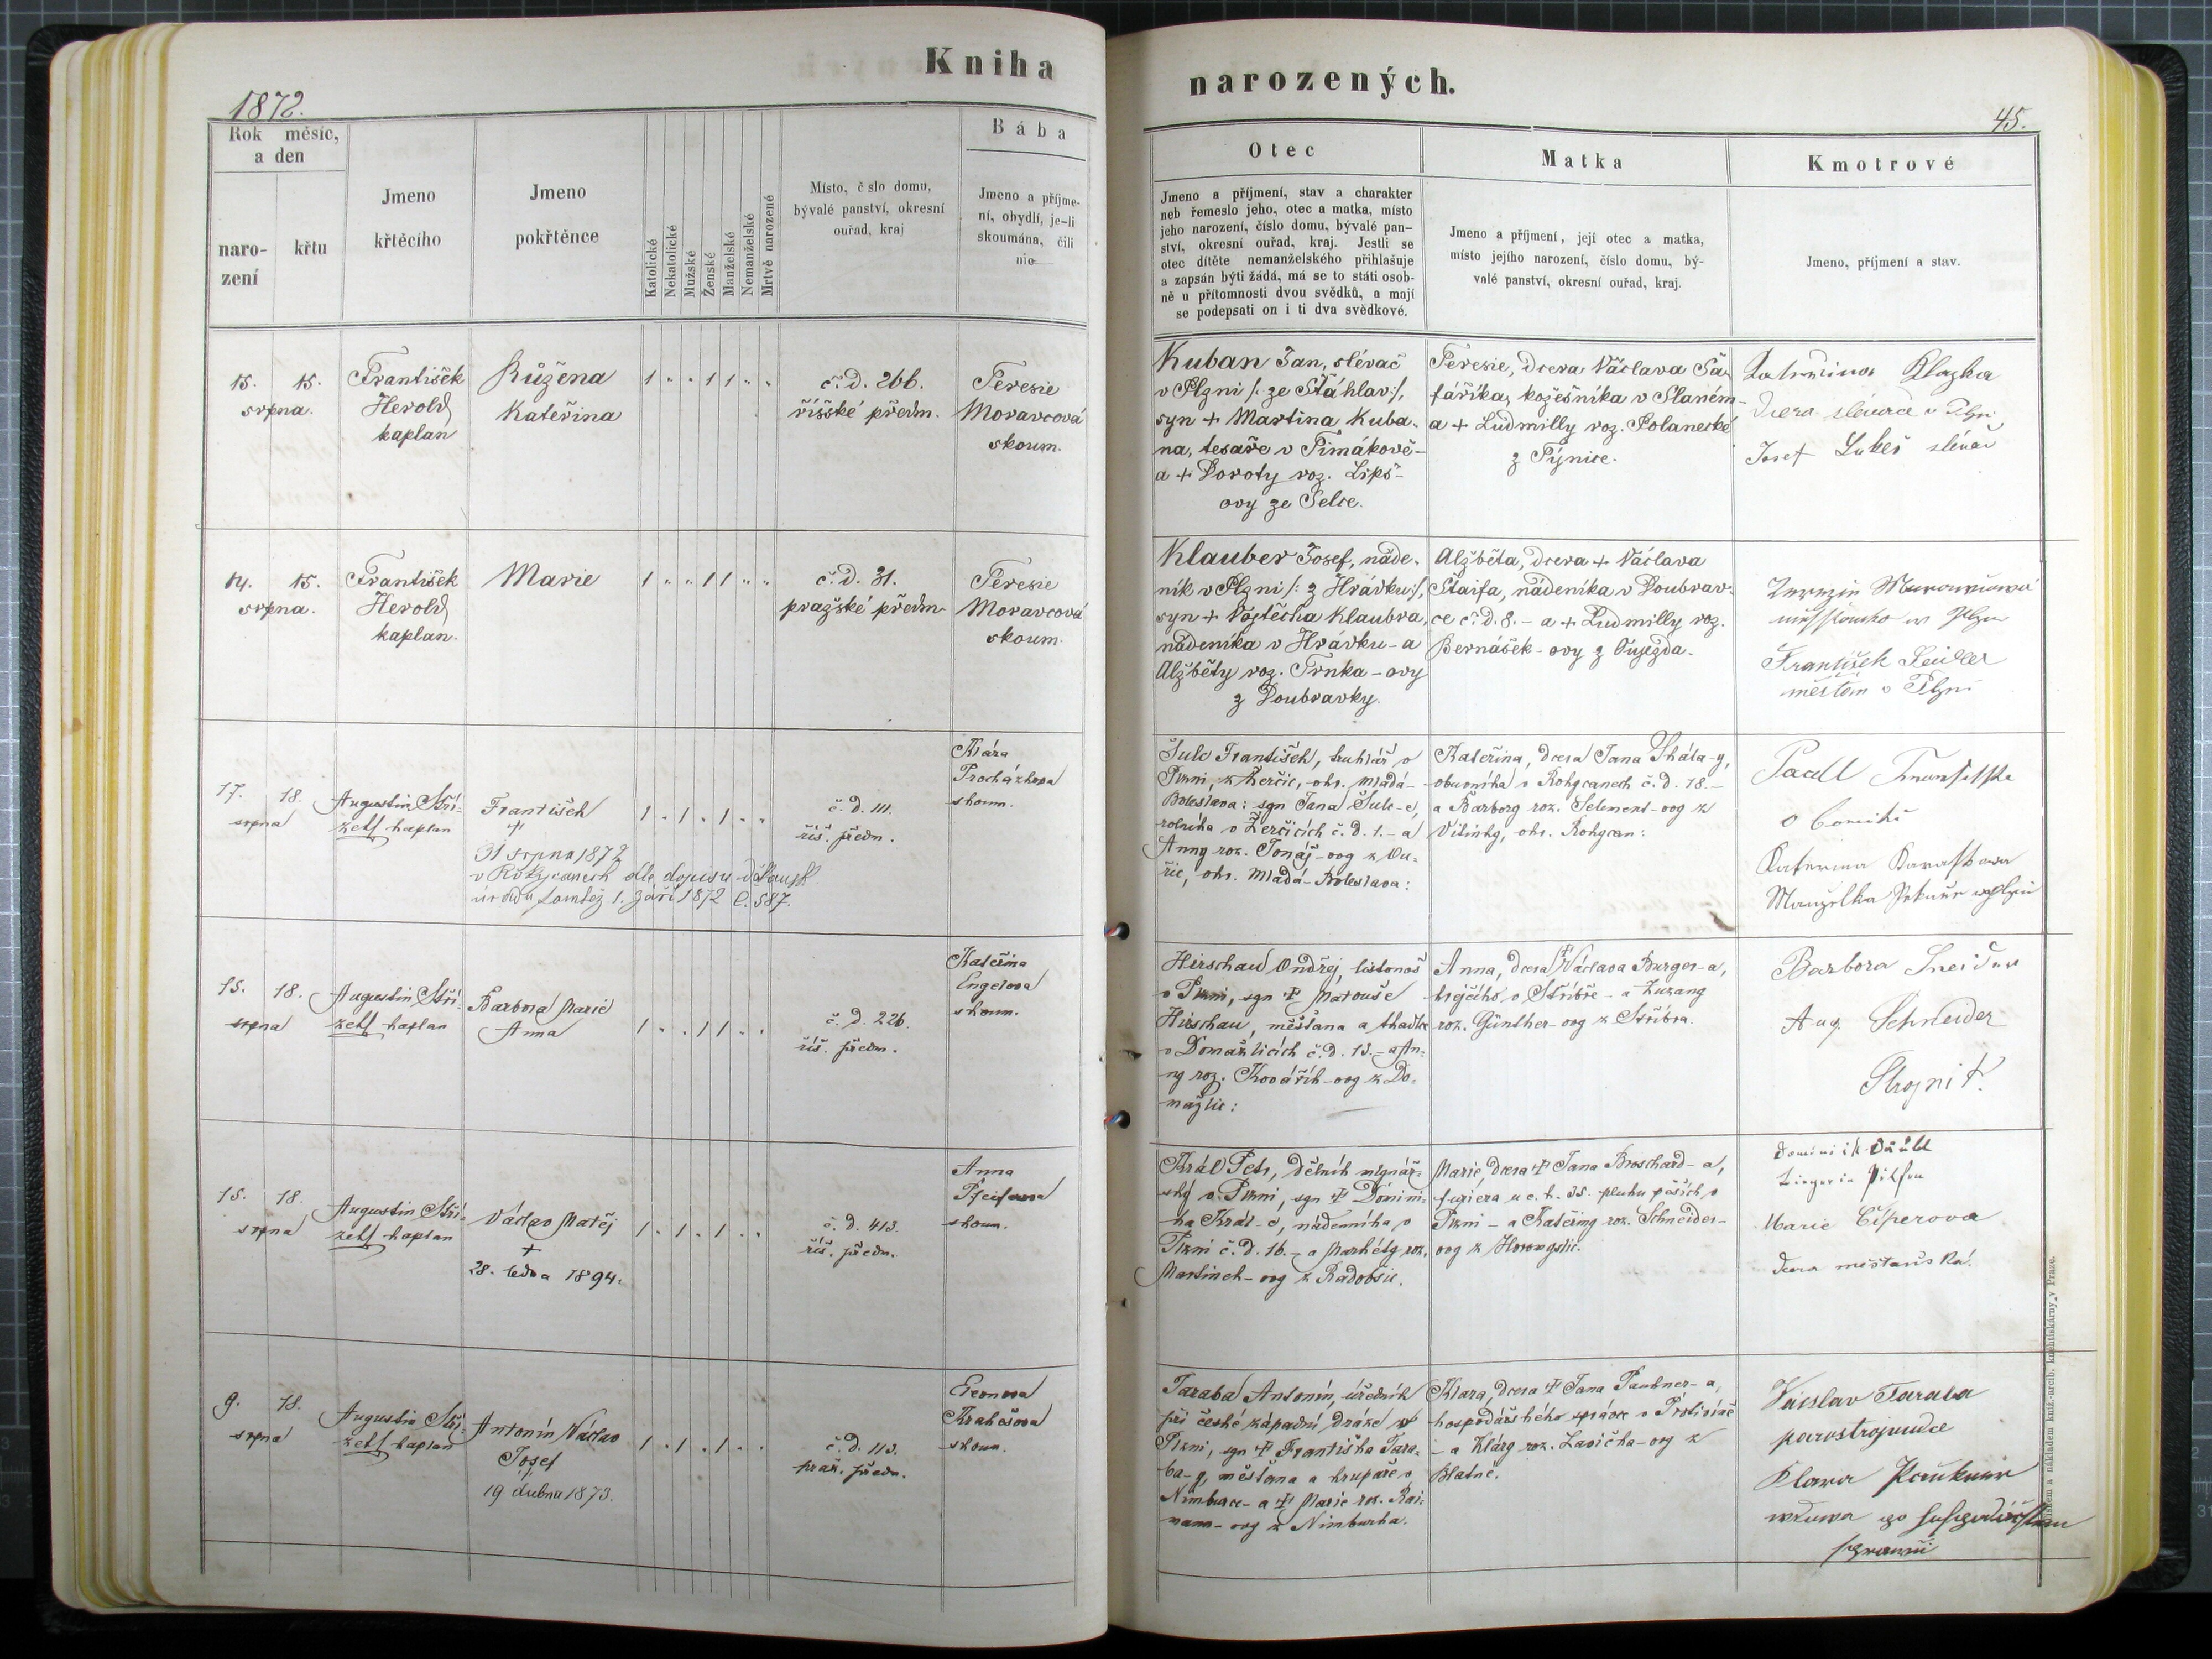 Kniha
narozených.
1872.
45.
Rok měsíc,
a den
naro-
zení
křtu
Jmeno
křtěcího
Jmeno
pokřtěnce
Katolické
Nekatolické
Mužské
Ženské
Manželské
Nemanželské
Mrtvě narozené
Místo, č slo domu,
bývalé panství, okresní
ouřad, kraj
Bába
Jmeno a příjme-
ní, obydlí, je-li
skoumána, čili
nic
Otec
Jmeno a příjmení, stav a charakter
neb řemeslo jeho, otec a matka, místo
jeho narození, číslo domu, bývalé pan-
ství, okresní ouřad, kraj. Jestli se
otec dítěte nemanželského přihlašuje
a zapsán býti žádá, má se to státi osob-
ně u přítomnosti dvou svědků, a mají
se podepsati on i ti dva svědkové.
Matka
Jmeno a příjmení, její otec a matka,
místo jejího narození, číslo domu, bý-
valé panství, okresní ouřad, kraj.
Kmotrové
Jmeno, příjmení a stav.
15. 15.
srpna.
František
Herold
kaplan
Růžena
Kateřina
1 " " 1 1 " "
č. d. 266.
říšské předm.
Teresie
Moravcová
skoum.
Kuban Jan, slévač
v Plzni /: ze Šťáhlav :/,
syn + Martina Kuba-
na, tesaře v Timákově-
a + Doroty roz. Lipš-
ovy ze Selce.
Teresie, dcera Václava Ša-
fáříka, kožešníka v Slaném-
a + Ludmilly roz. Polanecké
z Týnice.
Klazka
dcera slévače v Plzni
Josef Lukeš slévač
14. 15.
srpna.
František
Herold
kaplan.
Marie
1 " " 1 1 " "
č. d. 31.
pražské předm
Teresie
Moravcová
skoum.
Klauber Josef, náde-
ník v Plzni /: z Hrádku :/,
syn + Vojtěcha Klaubra,
nádeníka v Hrádku - a
Alžběty roz. Trnka-ovy
z Doubravky.
Alžběta, dcera + Václava
Štaifa, nádeníka v Doubrav-
ce č. d. 8. - a + Ludmilly roz.
Bernášek-ovy z Oujezda.
František Seidler
měšťan v Plzni
17. 18.
srpna
Augustin Stří-
zek kaplan
František
+
31 srpna 1872
v Rokycanech dle dopisu děkansk.
úřadu tamtéž 1. září 1872 č. 587.
1 . 1 . 1 . .
č. d. 111.
říš. předm.
Klára
Procházkova
skoum.
Šulc František, truhlář v
Plzni, z Žerčic, okr. Mladá-
Boleslava: syn Jana Šulc-e,
rolníka v Žerčicích č. d. 1. - a
Anny roz. Tonáj-ovy z Ou-
řic, okr. Mladá-Boleslava:
Kateřina, dcera Jana Skála-y,
obuvníka v Rokycanech č. d. 18. -
a Barbory roz. Selement-ovy z
Vitinky, okr. Rokycan:
Katerina
Manželka
15. 18.
srpna
Augustin Stří-
zek kaplan
Barbora Marie
Anna
1 . . 1 1 . .
č. d. 226.
říš. předm.
Kateřina
Engelova
skoum.
Hirschau Ondřej, listonoš
v Plzni, syn + Matouše
Hirschau, měšťana a tkadlce
v Domažlicích č. d. 13. - a An-
ny roz. Kovářík-ovy z Do-
mažlic:
Anna, dcera + Václava Burger-a,
krejčího v Stříbře - a Zuzany
roz. Günther-ovy z Stříbra.
Barbora Sneider
Aug. Schneider
Strojník.
15. 18.
srpna
Augustin Stří-
zek kaplan
Václav Matěj
+
28. ledna 1894.
1 . 1 . 1 . .
č. d. 413.
říš. předm.
Anna
Pfeiferova
skoum.
Král Petr, dělník mlynář-
ský v Plzni, syn + Domini-
ka Král-e, nádenníka v
Plzni č. d. 16. - a Markéty roz.
Martinek-ovy z Radobčic.
Marie, dcera + Jana Broschard-a,
furiera u c. k. 35. pluku pěších v
Plzni - a Kateřiny roz. Schneider-
ovy z
Dominik
in Pilsen
Marie Cíperova
dcera měšťanská.
9. 18.
srpna
Augustin Stří-
zek kaplan
Antonín Václav
Josef
19 dubna 1873.
1 . 1 . 1 . .
č. d. 113.
praž. předm.
Eleonora
Krahešova
skoum.
Taraba Antonín, úředník
při české západní dráze v
Plzni, syn + Františka Tara-
ba-y, měšťana a krupaře v
Nimburce - a + Marie roz. Rai-
mann-ovy z Nimburka.
Klara, dcera + Jana Paubner-a,
hospodářského správce v Protivíně
- a Kláry roz. Lavička-ovy z
Blatné.
Václav Taraba
parostrojvudce
Klara